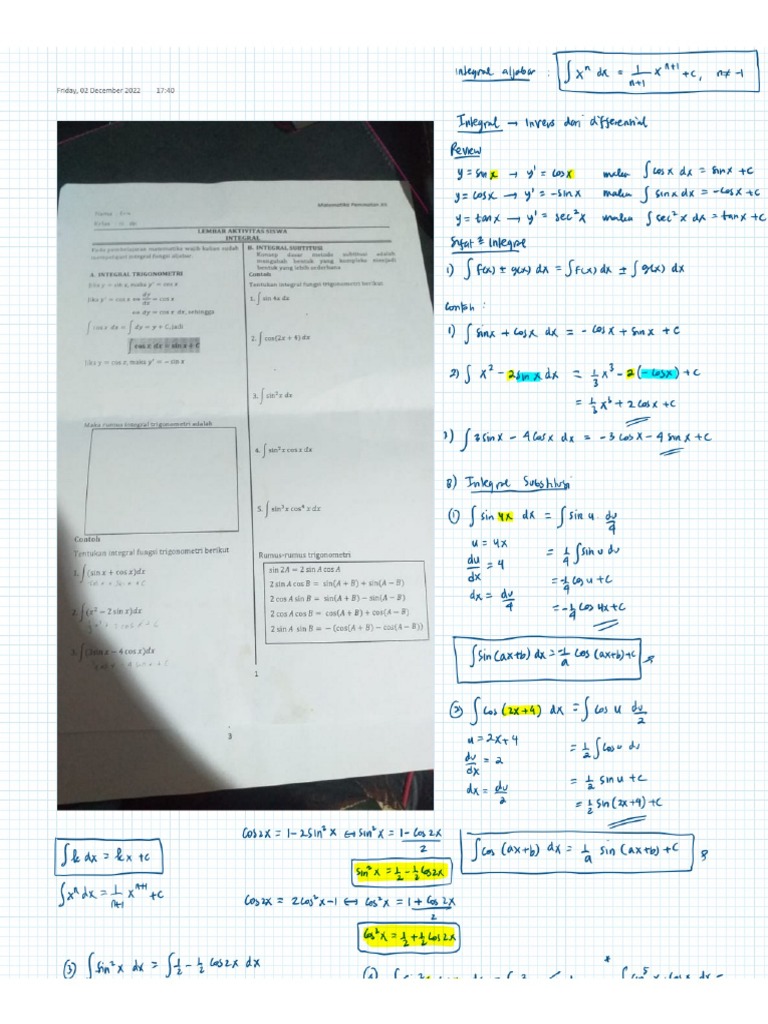 Friday, 02 December 2022 17:40
Integral aljabar : ∫ xⁿ dx = 1/(n+1) xⁿ⁺¹ + c, n ≠ -1
Integral → Invers dari differential
Review
y = sin x → y' = cos x maka ∫ cos x dx = sin x + c
y = cos x → y' = -sin x maka ∫ sin x dx = -cos x + c
y = tan x → y' = sec² x maka ∫ sec² x dx = tan x + c
Sifat² Integral
1) ∫ f(x) ± g(x) dx = ∫ f(x) dx ± ∫ g(x) dx
Contoh :
1) ∫ sin x + cos x dx = - cos x + sin x + c
2) ∫ x² - 2 sin x dx = 1/3 x³ - 2 (- cos x) + c
= 1/3 x³ + 2 cos x + c
3) ∫ 3 sin x - 4 cos x dx = -3 cos x - 4 sin x + c
B) Integral Substitusi
① ∫ sin 4x dx = ∫ sin u · du/4
u = 4x
= 1/4 ∫ sin u du
du/dx = 4
= -1/4 cos u + c
dx = du/4
= -1/4 cos 4x + c
∫ sin (ax+b) dx = -1/a cos (ax+b) + c
② ∫ cos (2x+4) dx = ∫ cos u du/2
u = 2x+4
= 1/2 ∫ cos u du
du/dx = 2
= 1/2 sin u + c
dx = du/2
= 1/2 sin (2x+4) + c
∫ cos (ax+b) dx = 1/a sin (ax+b) + c
Matematika Peminatan XII
LEMBAR AKTIVITAS SISWA
INTEGRAL
Pada pembelajaran matematika wajib kalian sudah
mempelajari integral fungsi aljabar.
A. INTEGRAL TRIGONOMETRI
Jika y = sin x, maka y' = cos x
Jika y' = cos x ⇔ dy/dx = cos x
⇔ dy = cos x dx, sehingga
∫ cos x dx = ∫ dy = y + C, jadi
∫ cos x dx = sin x + C
Jika y = cos x, maka y' = − sin x
Maka rumus integral trigonometri adalah
Contoh
Tentukan integral fungsi trigonometri berikut
1. ∫(sin x + cos x)dx
2. ∫(x² − 2 sin x)dx
3. ∫(3 sin x − 4 cos x)dx
B. INTEGRAL SUBTITUSI
Konsep dasar metode subtitusi adalah
mengubah bentuk yang kompleks menjadi
bentuk yang lebih sederhana
Contoh
Tentukan integral fungsi trigonometri berikut
1. ∫ sin 4x dx
2. ∫ cos(2x + 4) dx
3. ∫ sin² x dx
4. ∫ sin² x cos x dx
5. ∫ sin³ x cos⁴ x dx
Rumus-rumus trigonometri
sin 2A = 2 sin A cos A
2 sin A cos B = sin(A + B) + sin(A − B)
2 cos A sin B = sin(A + B) − sin(A − B)
2 cos A cos B = cos(A + B) + cos(A − B)
2 sin A sin B = −(cos(A + B) − cos(A − B))
1
3
∫ k dx = kx + c
∫ xⁿ dx = 1/(n+1) xⁿ⁺¹ + c
cos 2x = 1 - 2 sin² x ↔ sin² x = (1 - cos 2x)/2
sin² x = 1/2 - 1/2 cos 2x
cos 2x = 2 cos² x - 1 ↔ cos² x = (1 + cos 2x)/2
cos² x = 1/2 + 1/2 cos 2x
③ ∫ sin² x dx = ∫ 1/2 - 1/2 cos 2x dx